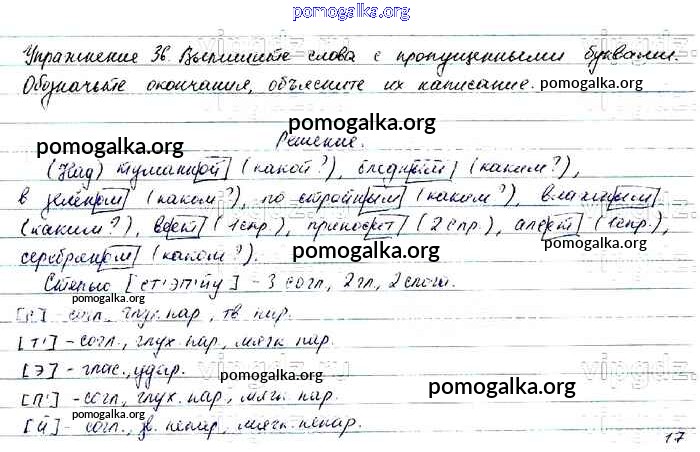 pomogalka.org
Упражнение 36. Выпишите слова с пропущенными буквами.
Обозначьте окончания, объясните их написание. pomogalka.org
pomogalka.org pomogalka.org
Решение.
(Над) туманной (какой?), бледным (каким?),
в зелёном (каком?), по стройным (каким?), влажным
(каким?), веет (1 спр.), приносит (2 спр.), алеет (1 спр.),
серебряном (каком?).
Степью [ст'эп'йу] – 3 согл, 2 гл, 2 слога.
pomogalka.org pomogalka.org
[с] – согл, глух. пар, тв. пар.
[т'] – согл., глух. пар, мягк. пар.
[э] – глас., удар.
pomogalka.org pomogalka.org
[п'] – согл, глух. пар, мягк. пар.
pomogalka.org
[й] – согл., зв. непар, мягк. непар.
17